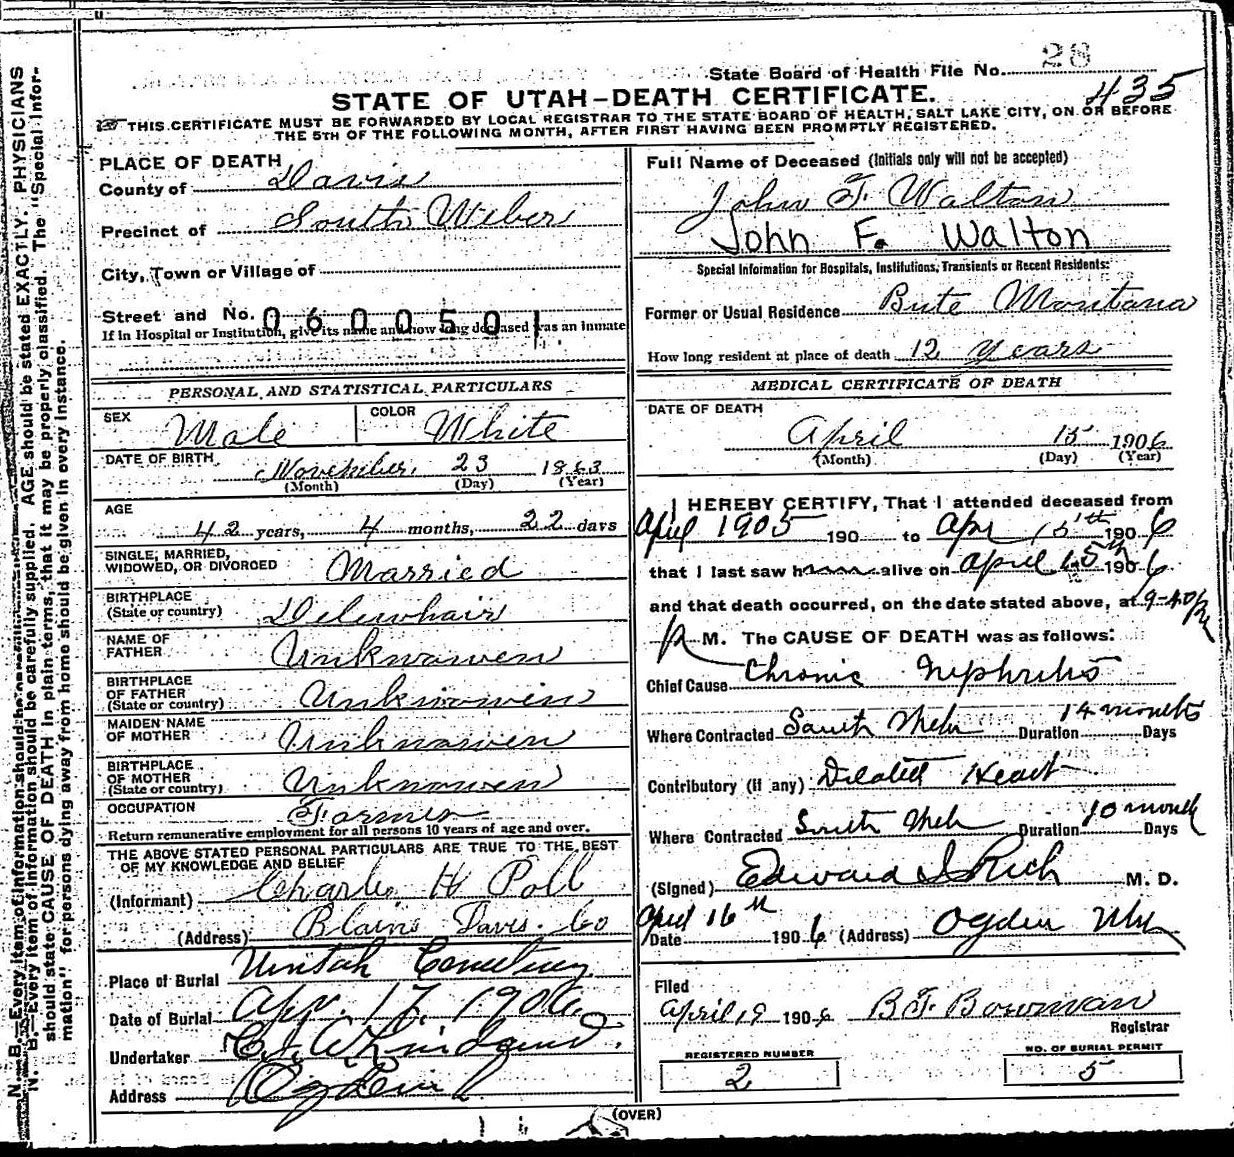 28
State Board of Health File No.
435
STATE OF UTAH-DEATH CERTIFICATE.
THIS CERTIFICATE MUST BE FORWARDED BY LOCAL REGISTRAR TO THE STATE BOARD OF HEALTH, SALT LAKE CITY, ON OR BEFORE
THE 5TH OF THE FOLLOWING MONTH, AFTER FIRST HAVING BEEN PROMPTLY REGISTERED.
PLACE OF DEATH
County of Davis
Precinct of South Weber
City, Town or Village of
Street and No. 0600501
If in Hospital or Institution, give its name and how long deceased was an inmate
PERSONAL AND STATISTICAL PARTICULARS
SEX Male COLOR White
DATE OF BIRTH November 23 1863
(Month) (Day) (Year)
AGE
42 years, 4 months, 22 days
SINGLE, MARRIED,
WIDOWED, OR DIVORCED Married
BIRTHPLACE
(State or country) Delewhair
NAME OF
FATHER Unknowen
BIRTHPLACE
OF FATHER
(State or country) Unknowin
MAIDEN NAME
OF MOTHER Unknowen
BIRTHPLACE
OF MOTHER
(State or country) Unknowen
OCCUPATION Farmer
Return remunerative employment for all persons 10 years of age and over.
THE ABOVE STATED PERSONAL PARTICULARS ARE TRUE TO THE BEST
OF MY KNOWLEDGE AND BELIEF
(Informant) Charles H Poll
(Address) Blain Davis Co
Place of Burial Uintah Cemetery
Date of Burial Apr. 17, 1906
Undertaker
Address Ogden
Full Name of Deceased (Initials only will not be accepted)
John F. Walton
John F. Walton
Special Information for Hospitals, Institutions, Transients or Recent Residents:
Former or Usual Residence Bute Montana
How long resident at place of death 12 years
MEDICAL CERTIFICATE OF DEATH
DATE OF DEATH
April 15 1906
(Month) (Day) (Year)
I HEREBY CERTIFY, That I attended deceased from
April 1905 190 to Apr 15th 1906
that I last saw h alive on April 15th 1906
and that death occurred, on the date stated above, at 9-40 P
P M. The CAUSE OF DEATH was as follows:
Chief Cause Chronic Nephritis
Where Contracted South Weber Duration 14 months Days
Contributory (if any) Dilated Heart
Where Contracted South Weber Duration 10 month Days
(Signed) Edward I Rich M. D.
April 16th
Date 1906 (Address) Ogden Utah
Filed
April 19 1906 B.F. Bowman
Registrar
REGISTERED NUMBER
2
NO. OF BURIAL PERMIT
5
(OVER)
N. B.—Every item of information should be carefully supplied. AGE should be stated EXACTLY. PHYSICIANS
should state CAUSE OF DEATH in plain terms, that it may be properly classified. The "Special Infor-
mation" for persons dying away from home should be given in every instance.